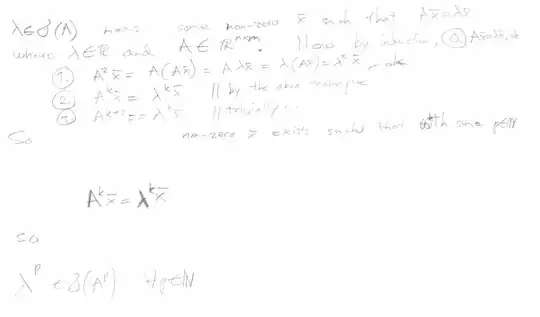 λ∈σ(A) means some non-zero x̄ such that Ax̄=λx̄
where λ∈ℝ and A∈ℝⁿˣᵐ. Now by induction, ⓪ Ax̄=λx̄, ok
① A²x̄ = A(Ax̄) = Aλx̄ = λ(Ax̄) = λ²x̄, ok
② Aᵏx̄ = λᵏx̄ // by the above technique
③ Aᵏ⁺¹x̄ = λᵏx̄ // trivially...
So non-zero x̄ exists such that with some p∈ℕ
Aᵏx̄ = λᵏx̄
so
λᵖ ∈ σ(Aᵖ) ∀p∈ℕ